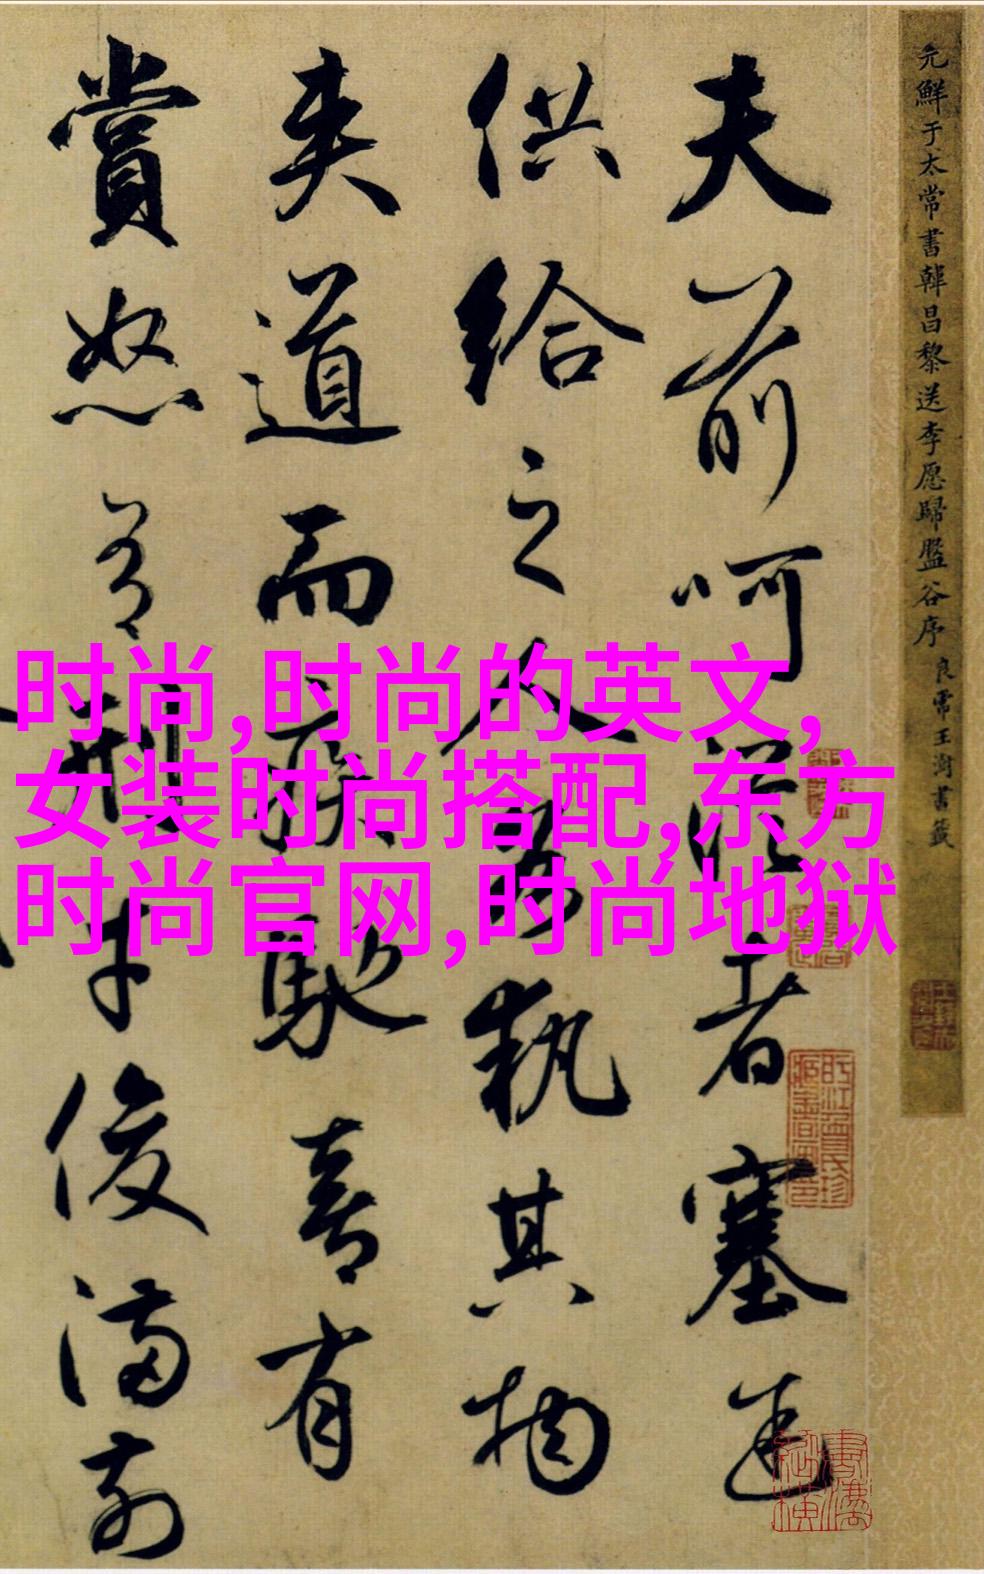 元鮮于太常書韓昌黎送李愿歸盤谷序 良常王澍書籤
夫前呵從者塞途
供給之人各執其物
夾道而疾馳喜有
賞怒有刑才俊滿前
时尚,时尚的英文,
女装时尚搭配,东方
时尚官网,时尚地狱